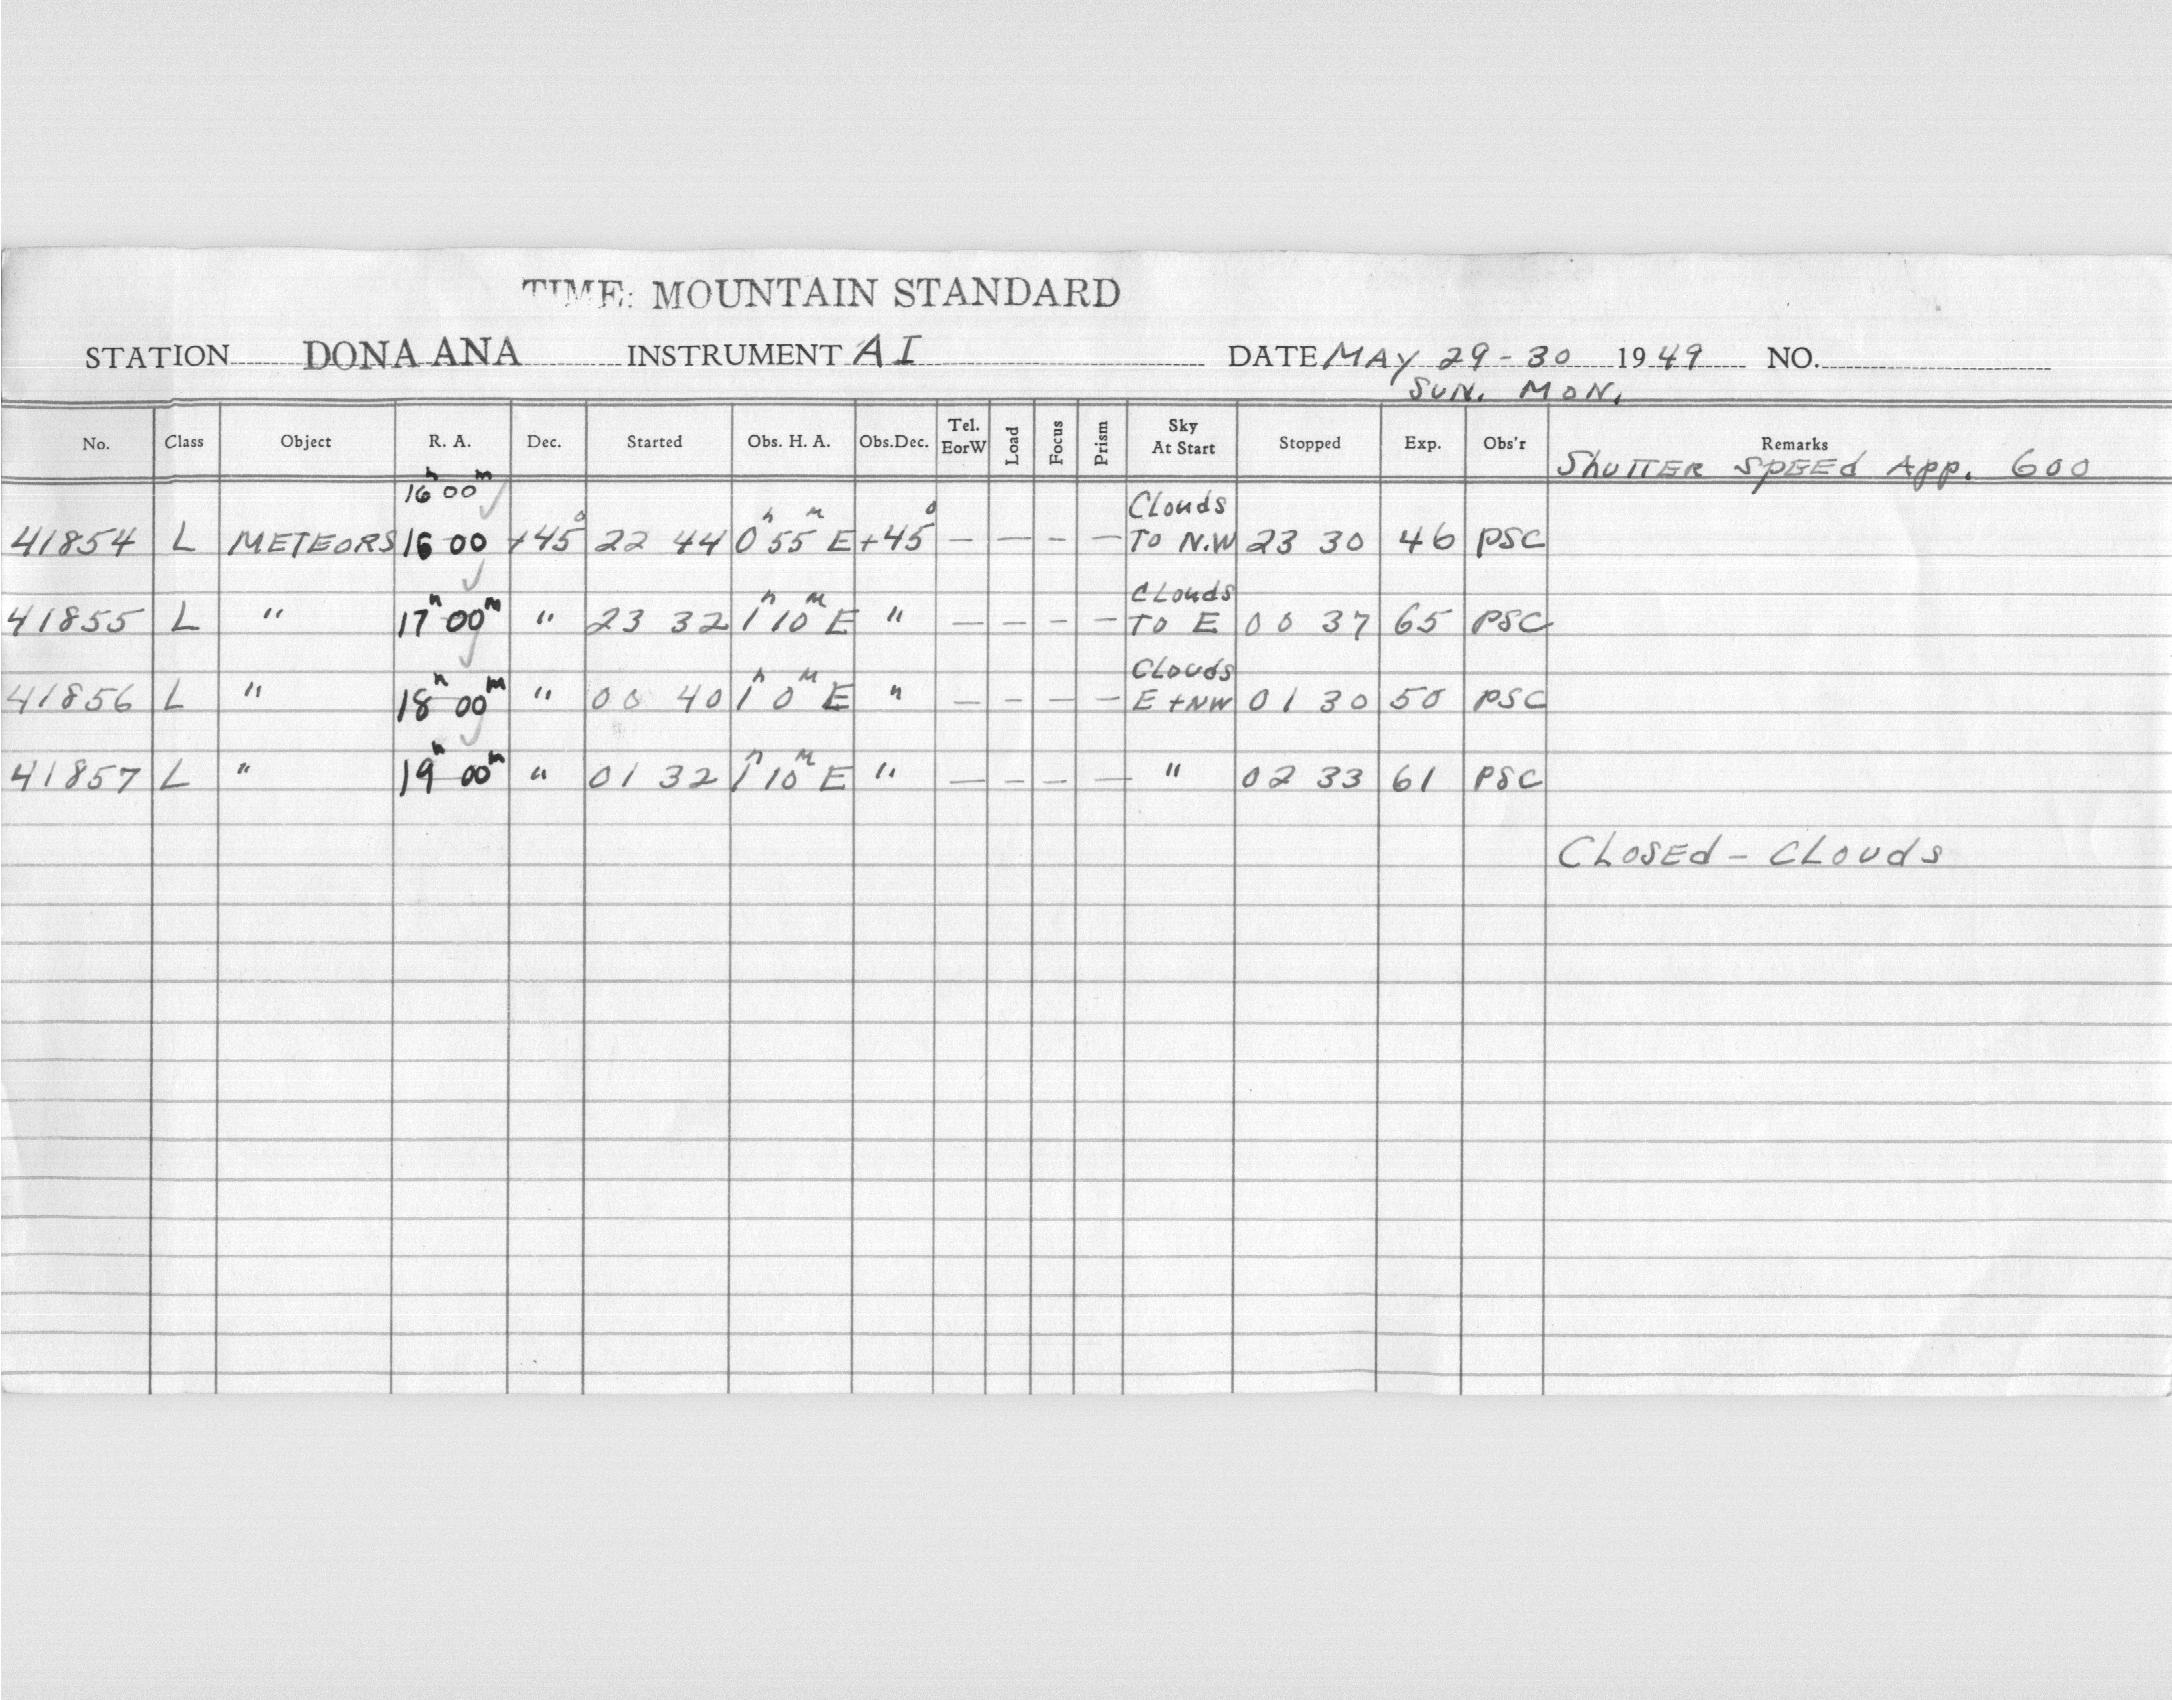 TIME: MOUNTAIN STANDARD
STATION DONA ANA INSTRUMENT AI DATE MAY 29-30 1949 NO.
SUN. MON.
No. Class Object R. A. Dec. Started Obs. H. A. Obs.Dec. Tel. EorW Load Focus Prism Sky At Start Stopped Exp. Obs'r Remarks
SHUTTER SPEEd App. 600
16h 00m
41854 L METEORS 16 00 +45° 22 44 0h 55m E +45° — — — — Clouds To N.W 23 30 46 PSC
41855 L " 17h 00m " 23 32 1h 10m E " — — — — CLouds To E 00 37 65 PSC
41856 L " 18h 00m " 00 40 1h 0m E " — — — — CLouds E + NW 01 30 50 PSC
41857 L " 19h 00m " 01 32 1h 10m E " — — — — " 02 33 61 PSC
CLOSEd - CLOUdS